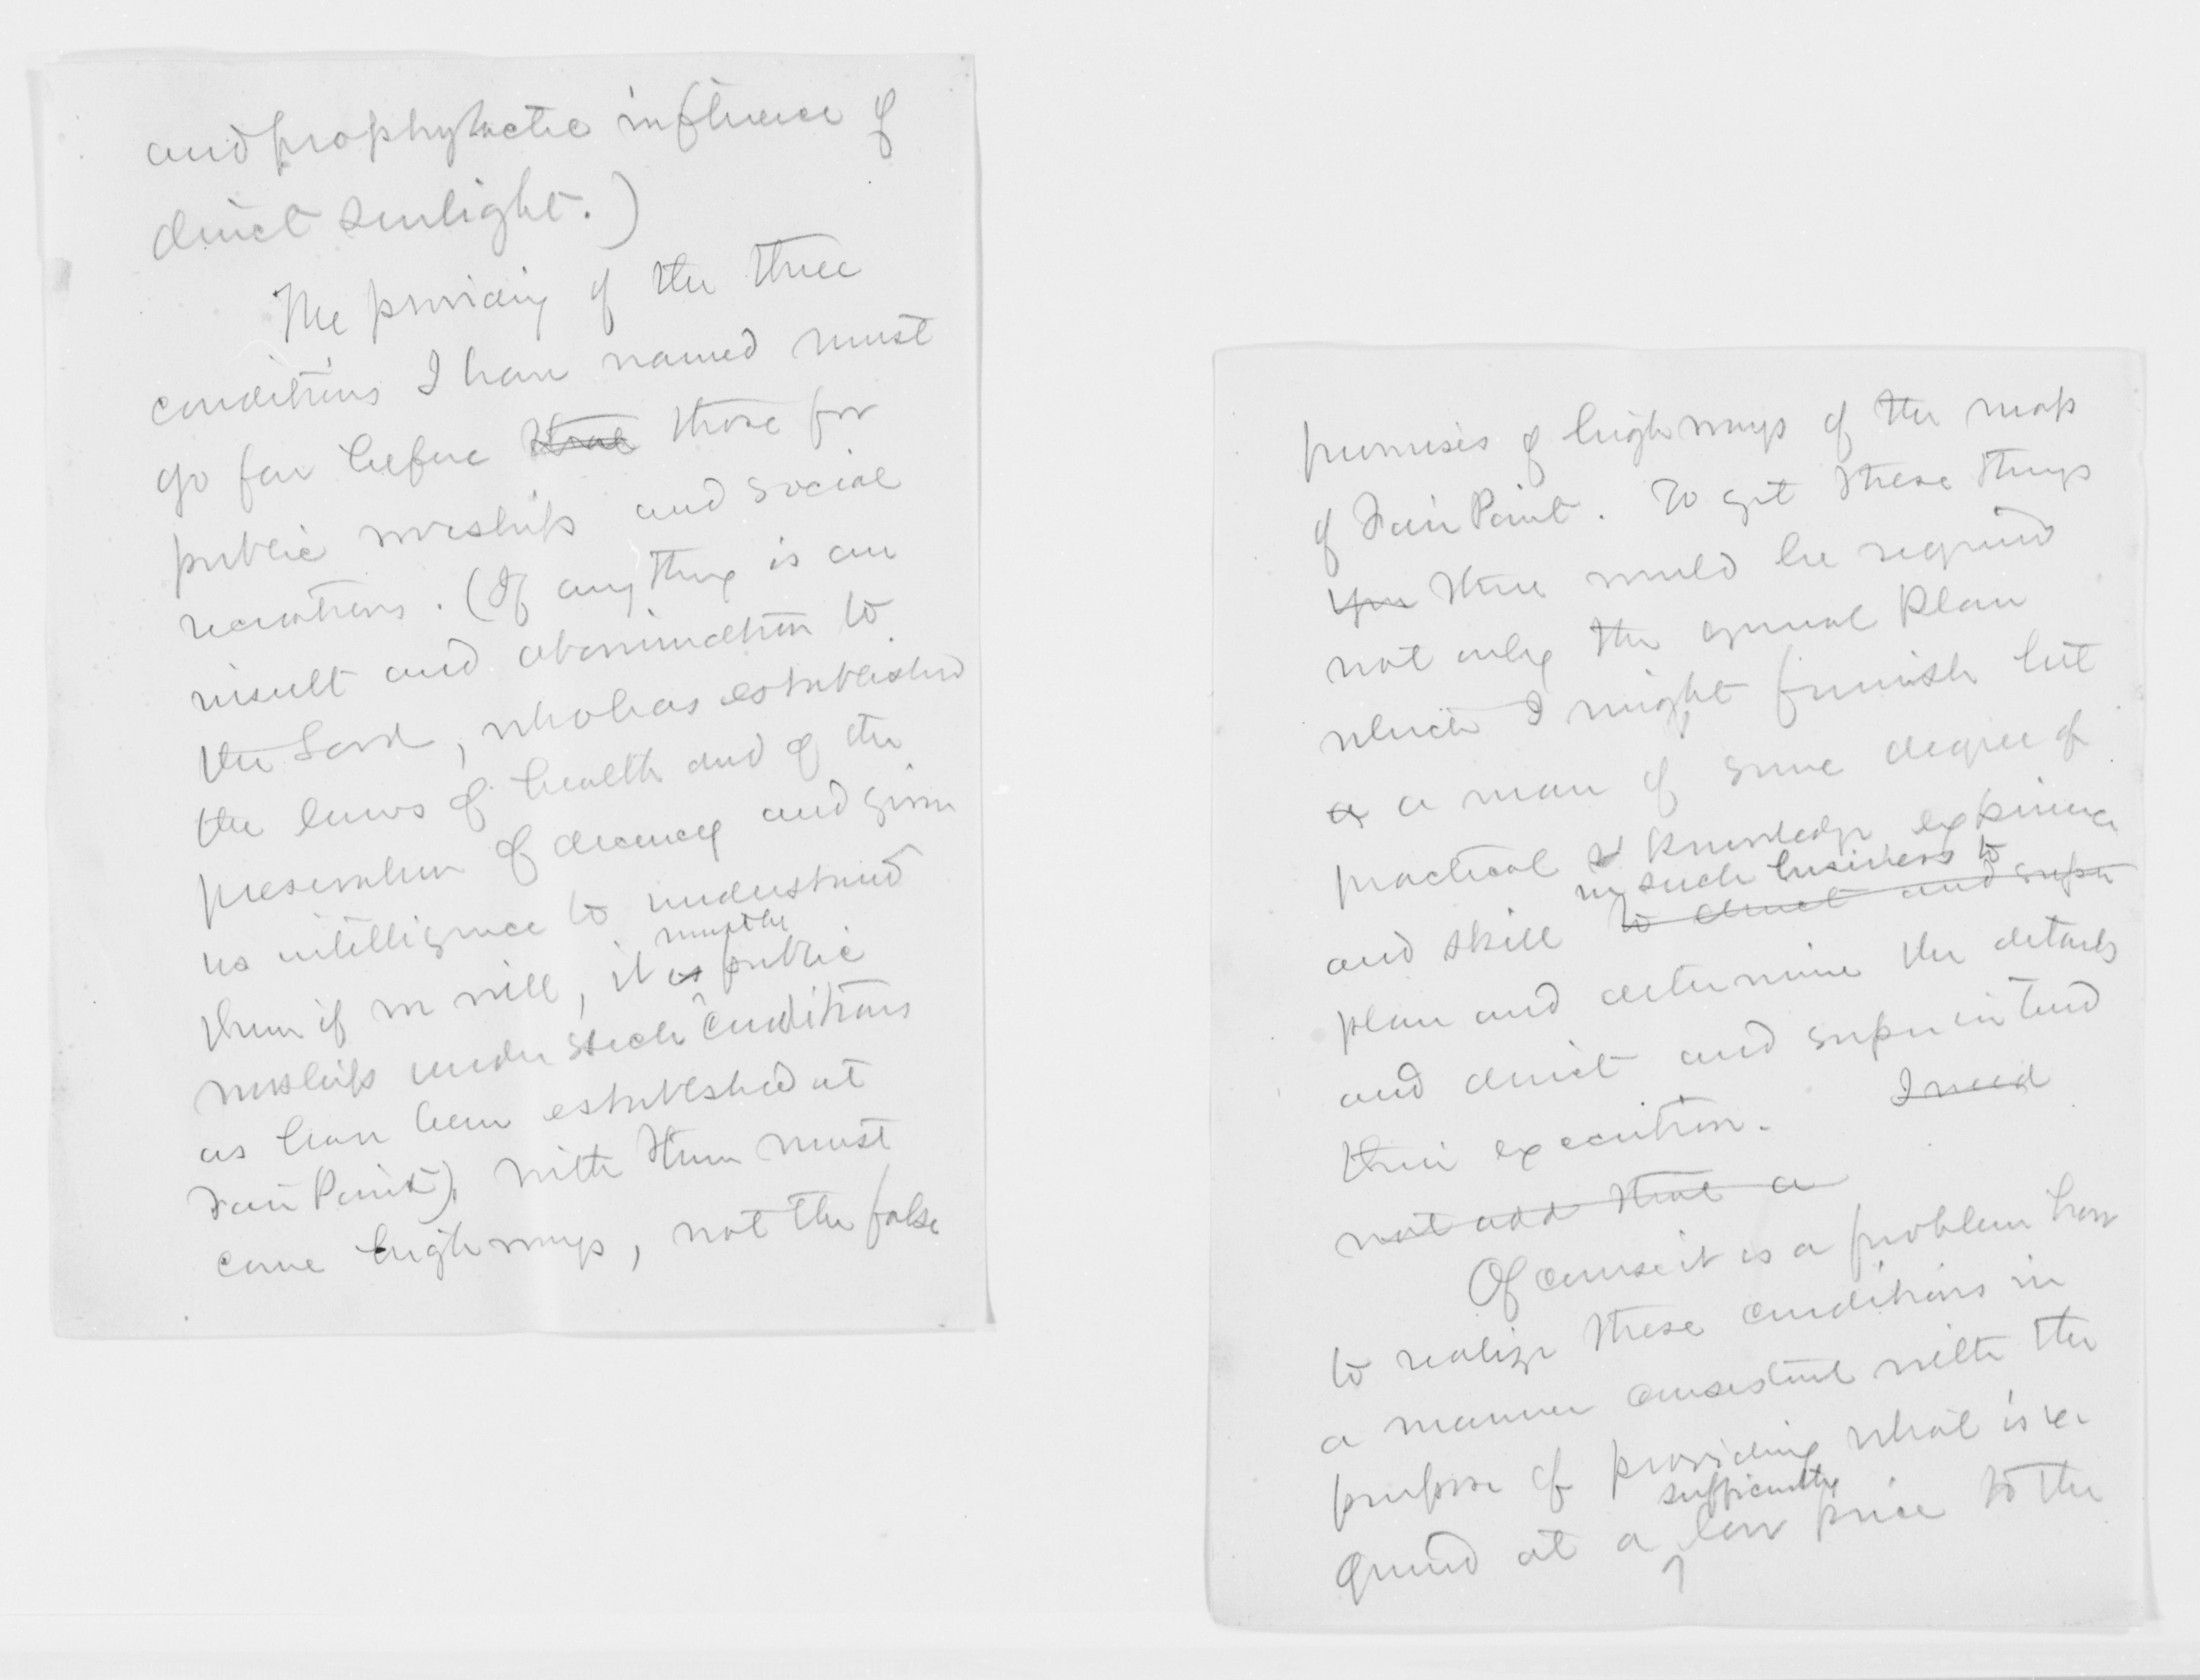 and prophylactic influence of
direct sunlight.)
The providing of the three
conditions I have named must
go far before that those for
public worship and social
recreations. (If any thing is an
insult and abomination to
the Lord, who has established
the laws of health and of the
preservation of decency and given
us intelligence to understand
must be
them if we will, it is public
worship under such conditions
as have been established at
Fair Point). With them must
come highways, not the false
promises of highways of the map
of Fair Point. To get these things
you there would be required
not only the general plan
which I might furnish but
a a man of some degree of
practical & knowledge experience
in such business to
and skill to direct and super
plan and determine the details
and direct and superintend
their execution. I need
not add that a
Of course it is a problem how
to realize these conditions in
a manner consistent with the
purpose of providing what is re
sufficiently
quired at a low price to the